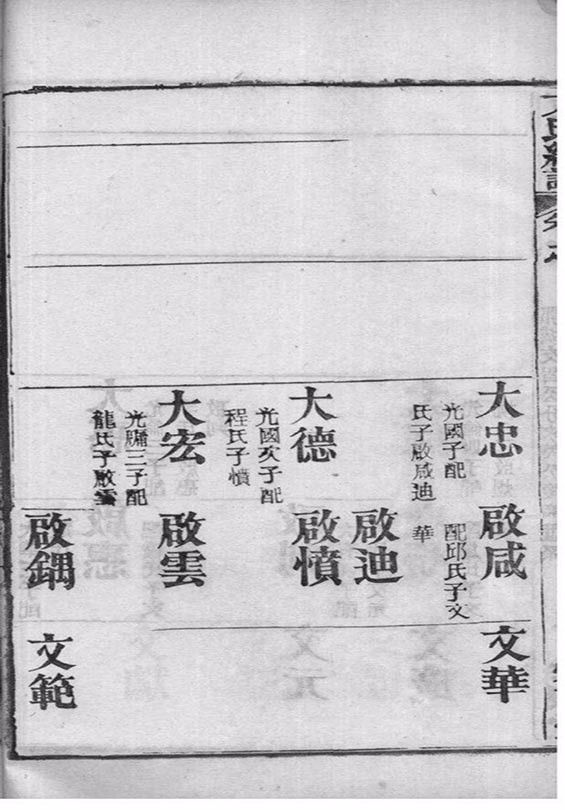 大忠
光國子配
氏子啟咸迪
啟咸
配邱氏子文
華
文華
啟迪
大德
光國次子配
程氏子憤
啟憤
大宏
光三子配
龍氏子啟雲
啟雲
啟鍝
文範